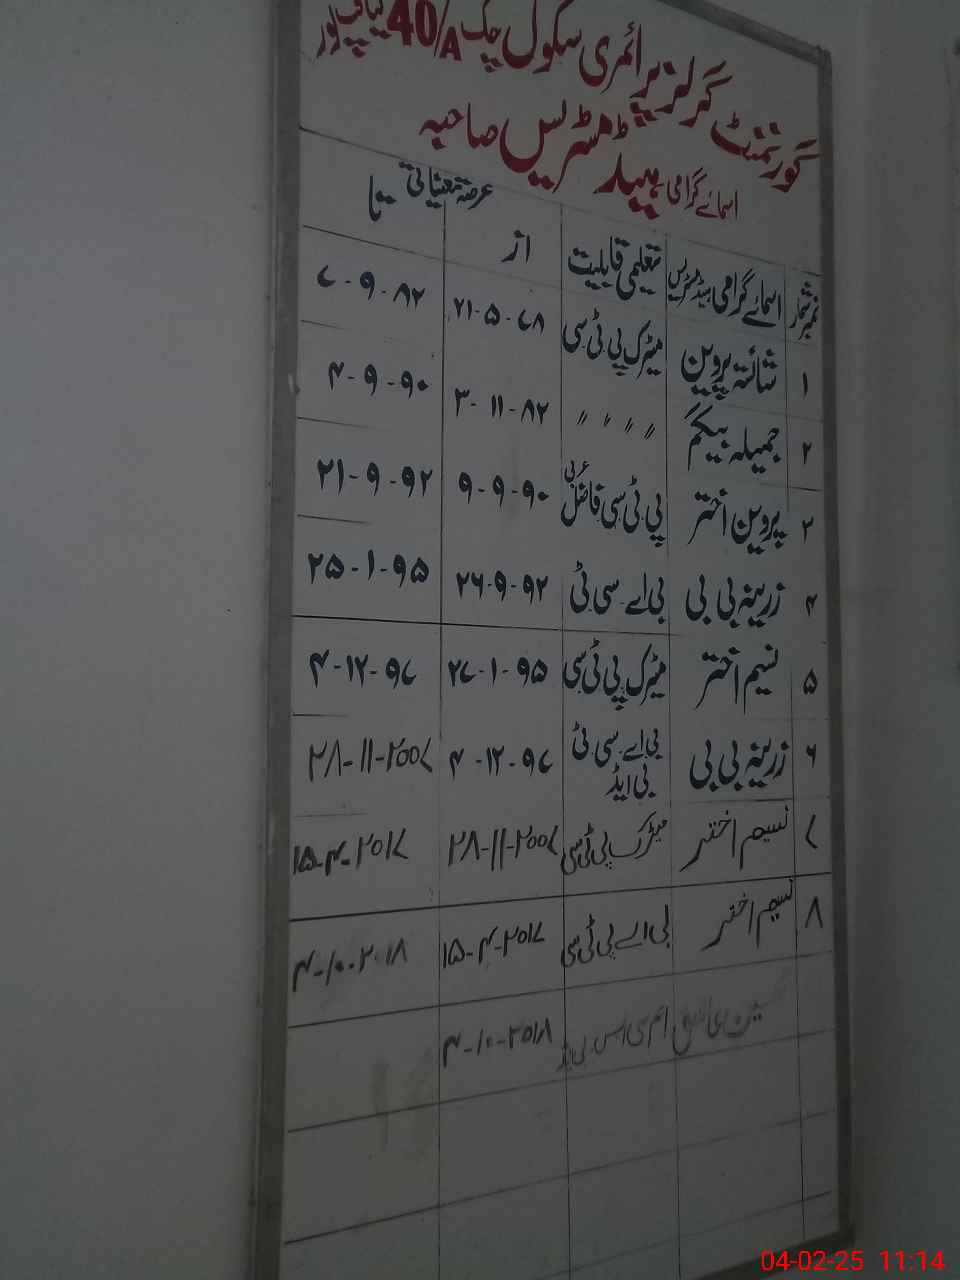 گورنمنٹ گرلز پرائمری سکول چک 40/A لیاقت پور
اسمائے گرامی ہیڈ مسٹریس صاحبہ
نمبر شمار اسمائے گرامی ہیڈ مسٹریس تعلیمی قابلیت عرصہ تعیناتی
از تا
۱ شائستہ پروین میٹرک پی ٹی سی ۲۱-۵-۷۸ ۷-۹-۸۲
۲ جمیلہ بیگم 〃 〃 〃 〃 ۳-۱۱-۸۲ ۴-۹-۹۰
۳ پروین اختر پی ٹی سی فاضل عربی ۹-۹-۹۰ ۲۱-۹-۹۲
۴ زرینہ بی بی بی اے۔سی ٹی ۲۶-۹-۹۲ ۲۵-۱-۹۵
۵ نسیم اختر میٹرک پی ٹی سی ۲۷-۱-۹۵ ۴-۱۲-۹۷
۶ زرینہ بی بی بی اے۔سی ٹی بی ایڈ ۴-۱۲-۹۷ ۲۸-۱۱-۲۰۰۷
۷ نسیم اختر میٹرک پی ٹی سی ۲۸-۱۱-۲۰۰۷ ۱۵-۴-۲۰۱۷
۸ نسیم اختر بی اے پی ٹی سی ۱۵-۴-۲۰۱۷ ۴-۱۰-۲۰۱۸
عاشق ایم سی ایس بی ایڈ ۴-۱۰-۲۰۱۸
04-02-25 11:14